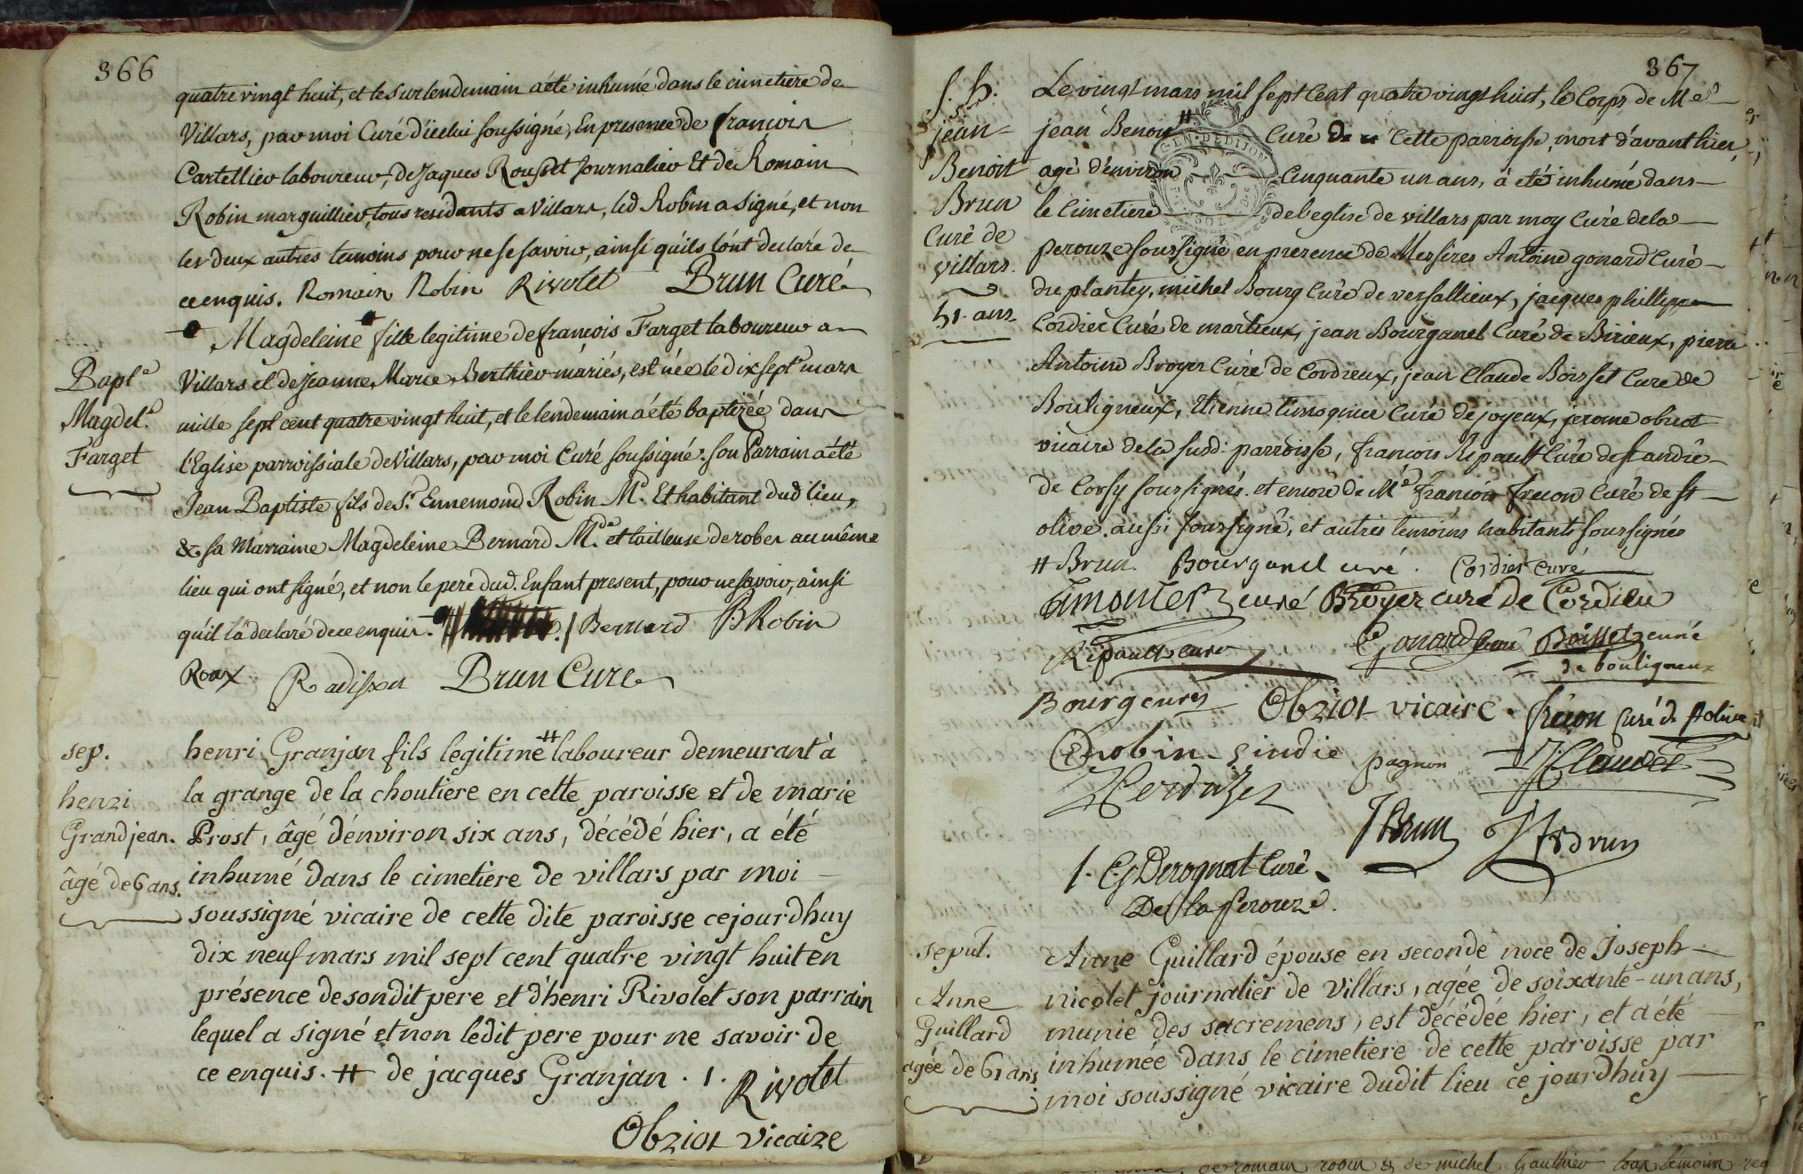 366
quatre vingt huit, et le surlendemain a été inhumé dans le cimetiere de
Villars, par moi Curé d'icelui soussigné, En presence de françois
Cartellier laboureur, de Jaques Rousset Journalier Et de Romain
Robin marguillier, tous residants a Villars, led Robin a signé, et non
les deux autres temoins pour ne se savoir, ainsi qu'ils l'ont declaré de
ce enquis. Romain Robin Rivolet Brun Curé
Bapt.e
Magdel.e
Farget
Magdeleine fille legitime de françois Farget laboureur a
Villars et de Jeanne Marie Berthier mariés, est née le dix sept mars
mille sept cent quatre vingt huit, et le lendemain a été baptizée dans
l'Eglise parroissiale de Villars, par moi Curé soussigné. son Parrain a été
Jean Baptiste fils de S.r Ennemond Robin M.d Et habitant dud lieu,
& sa Marraine Magdeleine Bernard M.de et tailleuse de robes au même
lieu qui ont signé, et non le pere dud. Enfant present, pour ne savoir, ainsi
qu'il l'a declaré de ce enquis. Bernard B Robin
Roux Radisson Brun Curé
sep.
henri
Grandjean.
âgé de 6 ans.
henri Granjan fils legitime # laboureur demeurant à
la grange de la choutiere en cette paroisse et de marie
Prost, âgé d'environ six ans, décédé hier, a été
inhumé dans le cimetiere de villars par moi
soussigné vicaire de cette dite paroisse cejourdhuy
dix neuf mars mil sept cent quatre vingt huit en
présence de son dit pere et d'henri Rivolet son parrain
lequel a signé et non ledit pere pour ne savoir de
ce enquis. # de jacques Granjan . 1. Rivolet
Obriot vicaire
367
S. h.
jean
Benoit
Brun
Curé de
villars.
51. ans
Le vingt mars mil sept Cent quatre vingt huit, le Corps de M.e
jean Benoit # Curé de cette parroisse, mort d'avant hier,
agé d'environ Cinquante un ans, à eté inhumé dans
le Cimetiere de l'eglise de villars par moy Curé de la
perouze soussigné en presence de Messires Antoine gonard Curé
du plantey, michel Bourg Curé de versallieux, jacques phillippe
Cordier Curé de marlieux, jean Bourganel Curé de Birieux, pierre
Antoine Broyer Curé de Cordieux, jean Claude Boisset Curé de
Bouligneux, Etienne limonier Curé de joyeux, jerome obriot
vicaire de la susd: parroisse, francois Ripault Curé de st andré
de Corsy soussignés. et encore de M.e francois frecon Curé de st
olive aussi soussigné, et autres temoins habitants soussignés
# Brun. Bourganel curé. Cordier curé
curé Broyer curé de Cordieu
Ripault curé Gonard curé Boisset curé
de bouligneux
Bourg curé Obriot vicaire. frecon Curé de st olive
Robin sindic pagnon
Brun Brun
1. Derognat Curé
De la perouze.
sepul.
Anne
Guillard
agée de 61 ans
Anne Guillard épouse en seconde noce de Joseph
nicolet journalier de Villars, agée de soixante-un ans,
munie des sacremens, est décédée hier, et a été
inhumée dans le cimetiere de cette paroisse par
moi soussigné vicaire dudit lieu ce jourdhuy